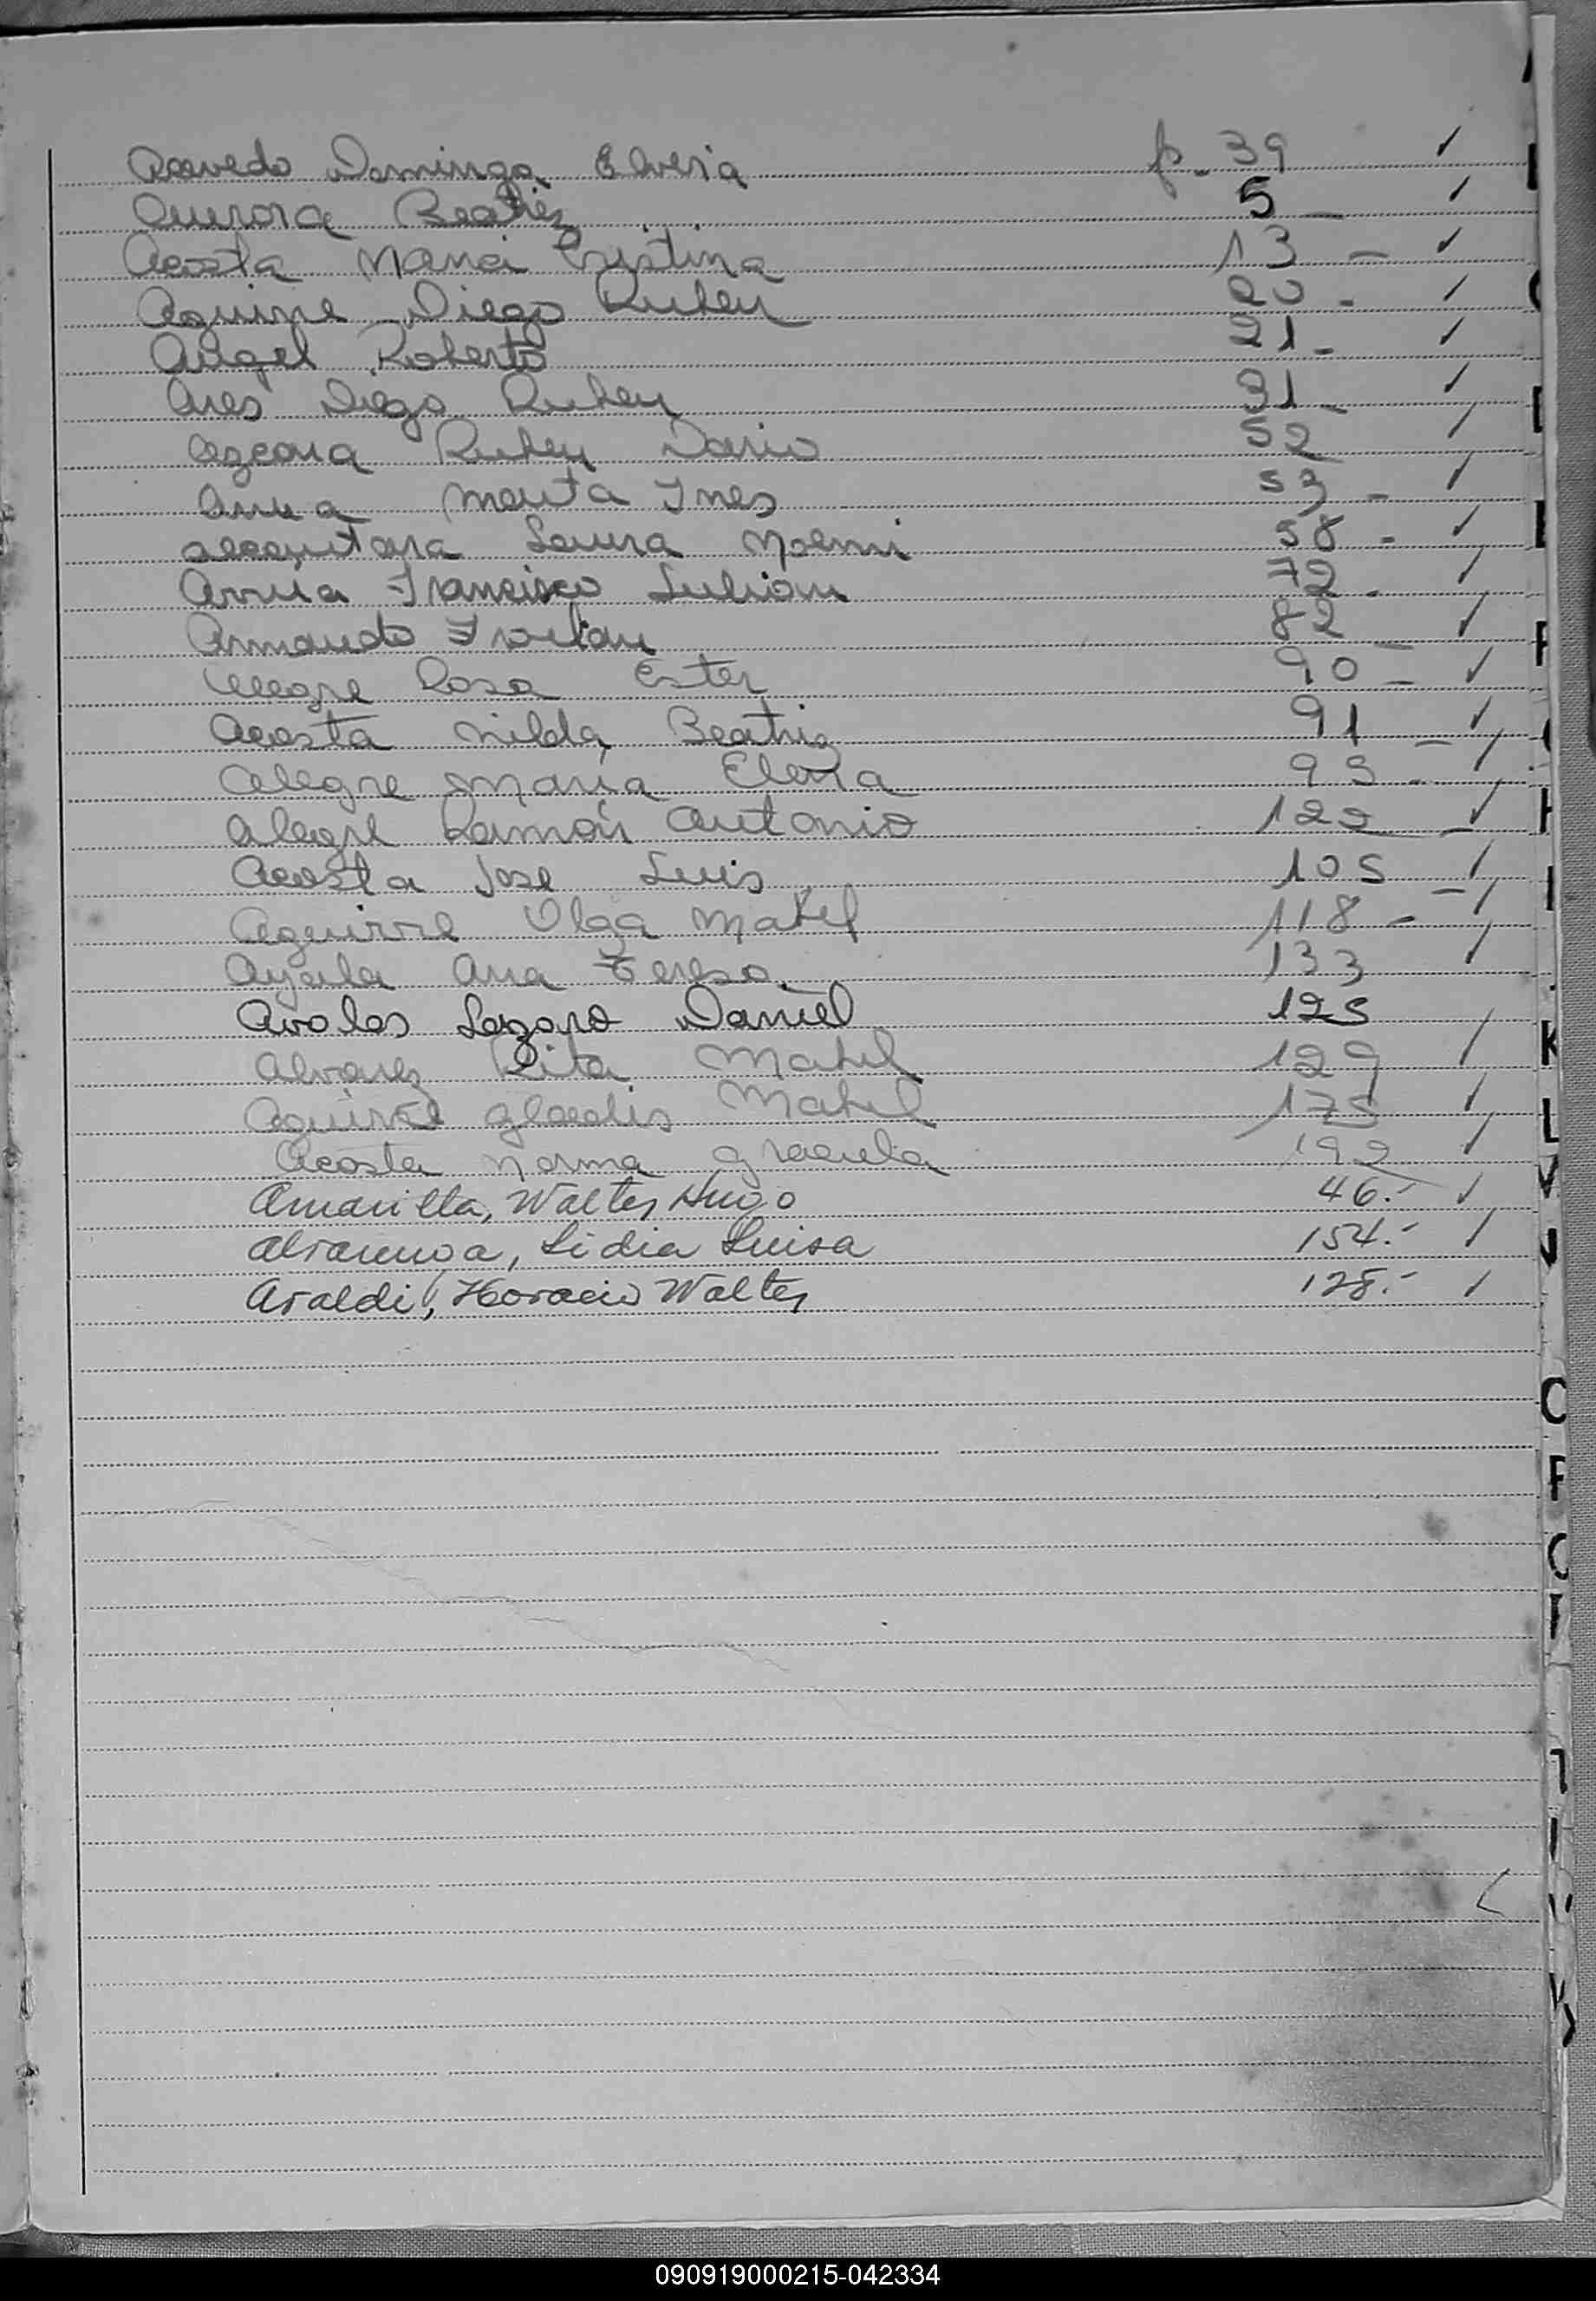 Acevedo Dominga Elveria p. 39 ✓
Aurora Beatriz 5 - ✓
Acosta Maria Cristina 13 - ✓
Aguirre Diego Ruben 20 - ✓
Angel Roberto 21 - ✓
Ares Diego Ruben 31 - ✓
Azcona Ruben Dario 52 ✓
Marta Ines 53 - ✓
Laura Noemi 58 - ✓
Arrua Francisco Julian 72 - ✓
Armando Froilan 82 - ✓
Alegre Rosa Ester 90 - ✓
Acosta Nilda Beatriz 91 - ✓
Alegre Maria Elena 95 - ✓
Alegre Ramón Antonio 122 - ✓
Acosta Jose Luis 105 - ✓
Aguirre Olga Mabel 118 - ✓
Ayala Ana Teresa 133 ✓
Avalos Lazaro Daniel 125
Alvarez Rita Mabel 129 ✓
Aguirre Gladis Mabel 175 ✓
Acosta Norma Graciela 192 ✓
Amarilla, Walter Hugo 46.- ✓
Alvarenga, Lidia Luisa 154.- ✓
Araldi, Horacio Walter 128.- ✓
K
L
C
F
090919000215-042334